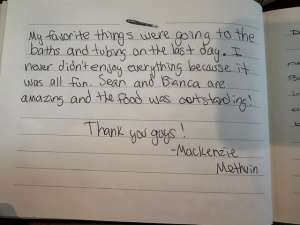 My favorite things were going to the
baths and tubing on the last day. I
never didn't enjoy everything because it
was all fun. Sean and Bianca are
amazing and the food was outstanding!
Thank you guys!
-Mackenzie
Methvin